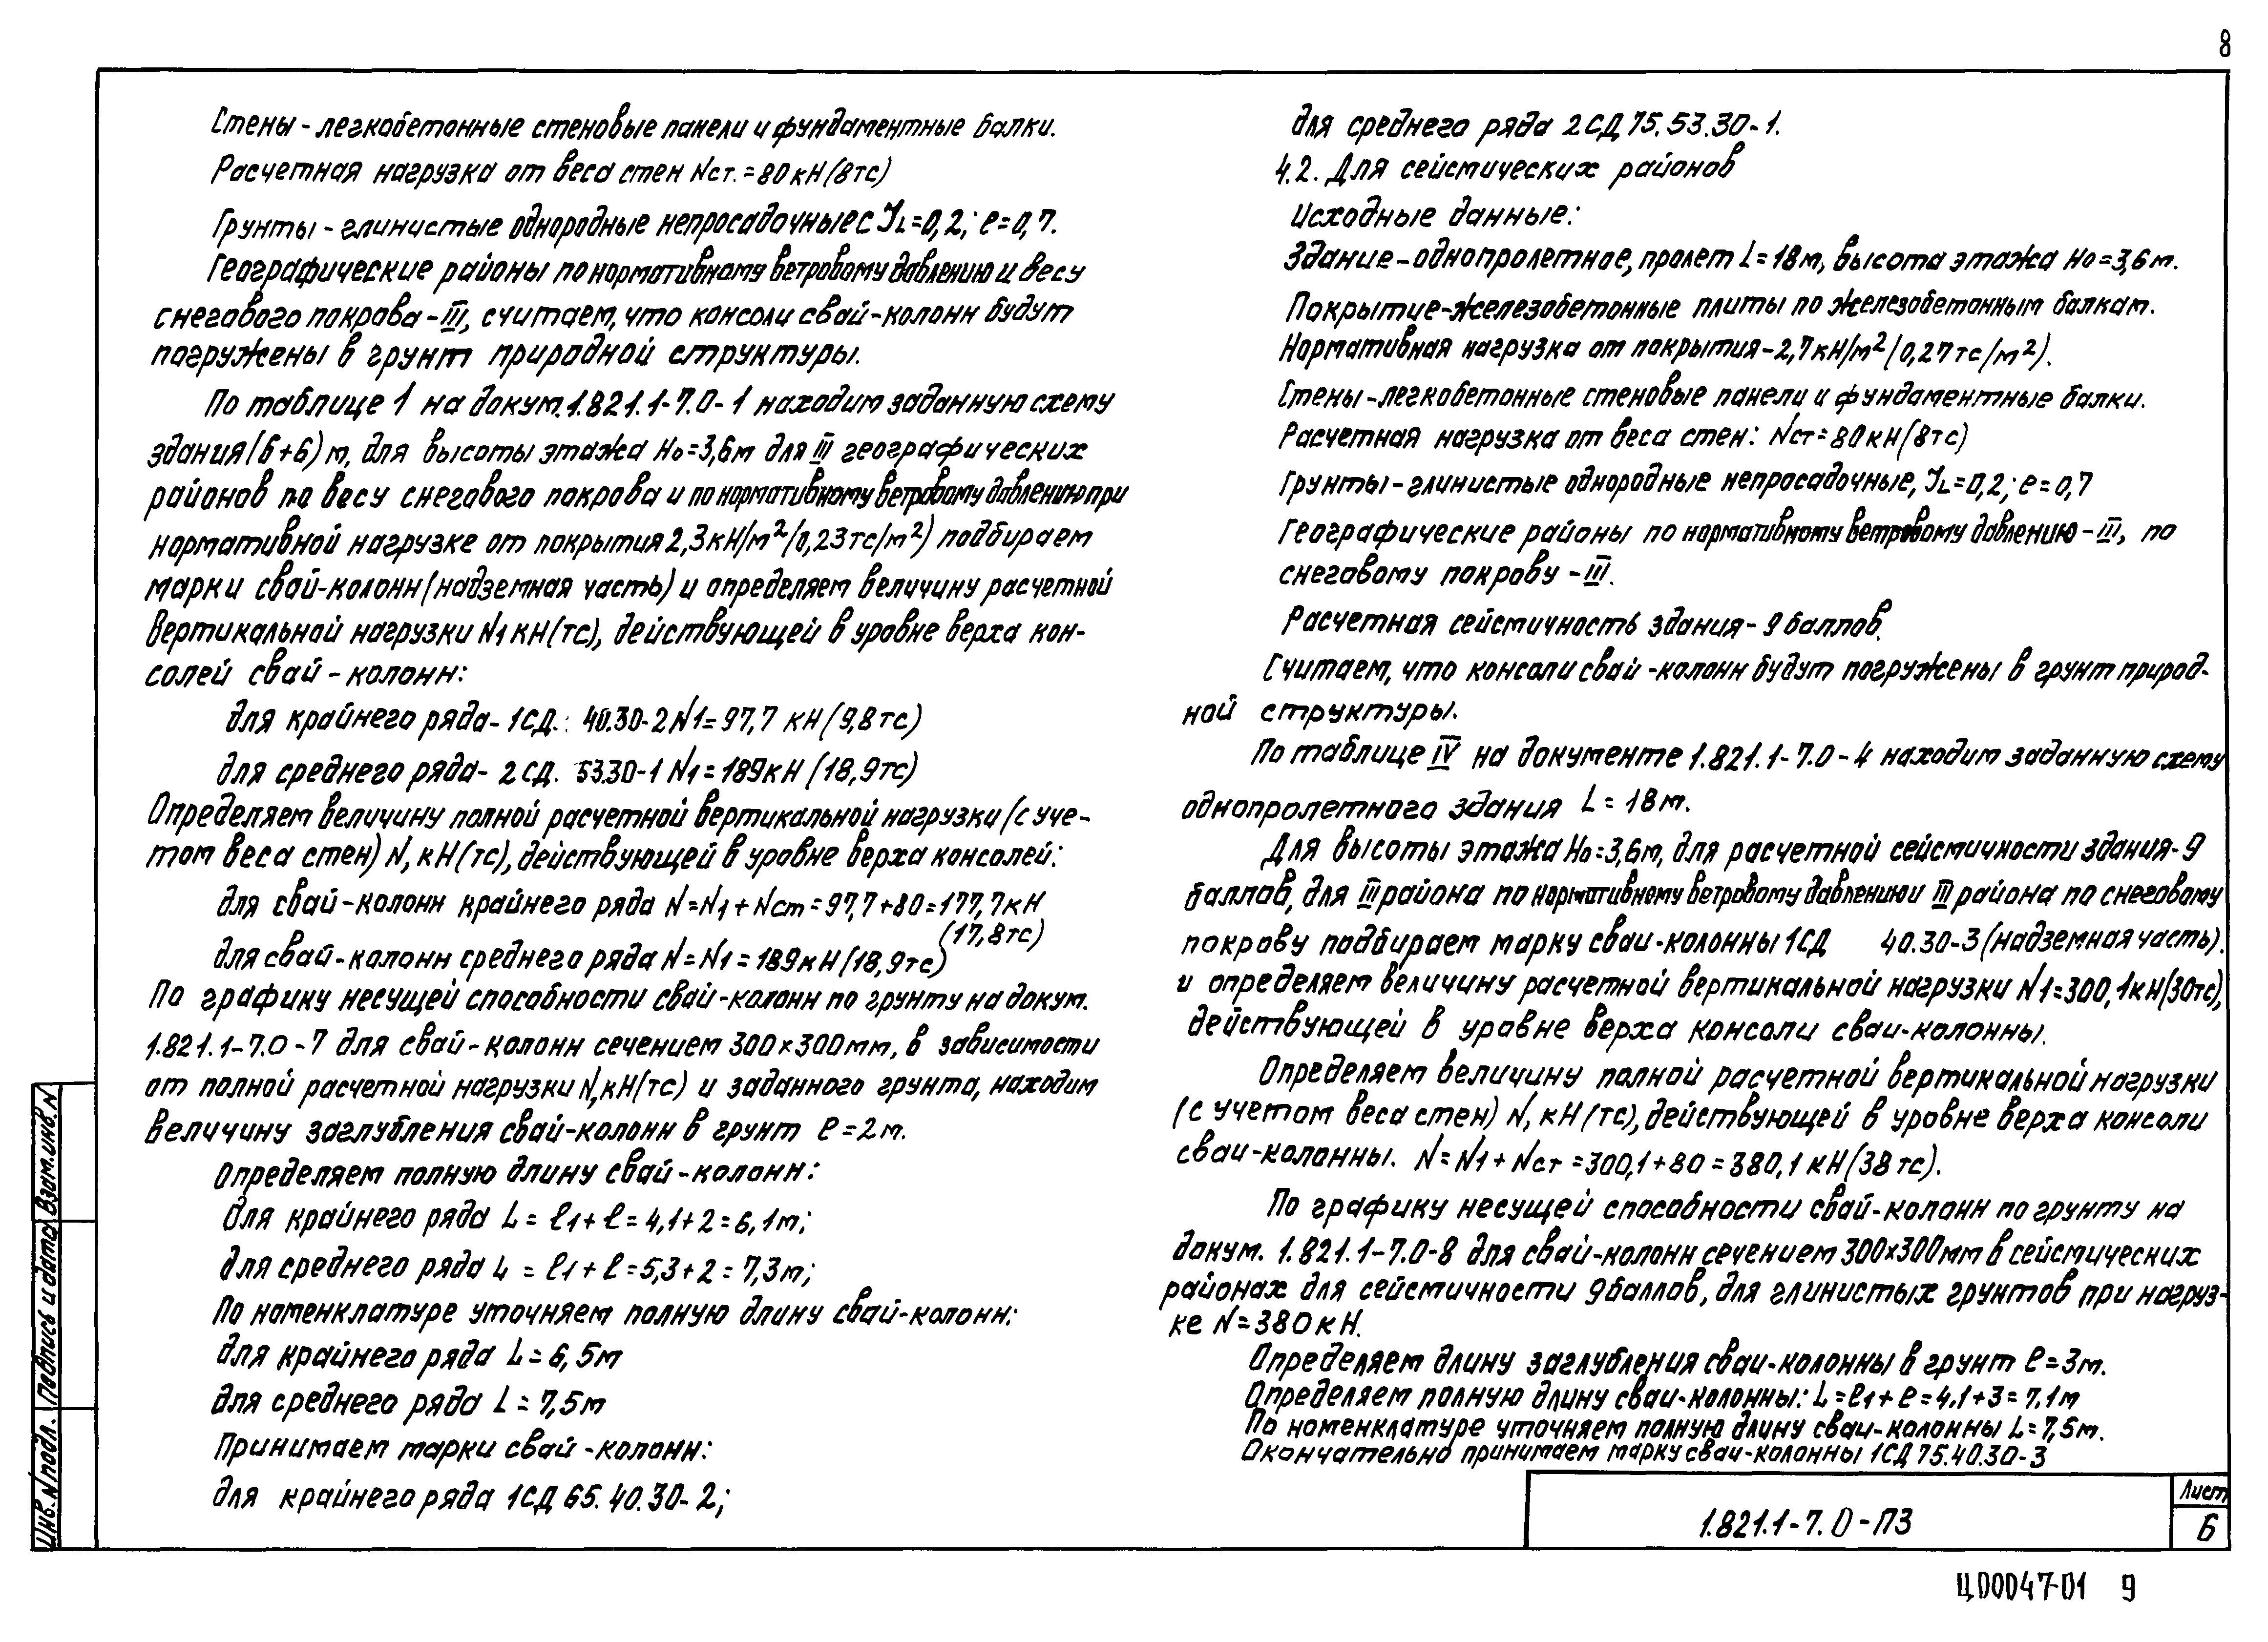 8
Стены - легкобетонные стеновые панели и фундаментные балки.
Расчетная нагрузка от веса стен Nст. = 80 кН (8тс)
Грунты - глинистые однородные непросадочные с JL = 0,2; е = 0,7.
Географические районы по нормативному ветровому давлению и весу
снегового покрова - III, считаем, что консоли свай-колонн будут
погружены в грунт природной структуры.
По таблице 1 на докум. 1.821.1-7.0-1 находим заданную схему
здания (6+6) м, для высоты этажа Но=3,6м для III географических
районов по весу снегового покрова и по нормативному ветровому давлению при
нормативной нагрузке от покрытия 2,3 кН/м² (0,23 тс/м²) подбираем
марки свай-колонн (надземная часть) и определяем величину расчетной
вертикальной нагрузки N1 кН (тс), действующей в уровне верха кон-
солей свай - колонн:
для крайнего ряда - 1СД. 40.30-2 N1 = 97,7 кН (9,8 тс)
для среднего ряда - 2СД. 53.30-1 N1 = 189 кН (18,9 тс)
Определяем величину полной расчетной вертикальной нагрузки (с уче-
том веса стен) N, кН (тс), действующей в уровне верха консолей:
для свай-колонн крайнего ряда N=N1+Nст = 97,7+80=177,7кН
(17,8 тс)
для свай-колонн среднего ряда N=N1 = 189 кН (18,9 тс)
По графику несущей способности свай-колонн по грунту на докум.
1.821.1-7.0-7 для свай-колонн сечением 300×300мм, в зависимости
от полной расчетной нагрузки N, кН (тс) и заданного грунта, находим
величину заглубления свай-колонн в грунт ℓ = 2м.
Определяем полную длину свай-колонн:
для крайнего ряда L = ℓ1 + ℓ = 4,1 + 2 = 6,1м;
для среднего ряда L = ℓ1 + ℓ = 5,3 + 2 = 7,3м;
По номенклатуре уточняем полную длину свай-колонн:
для крайнего ряда L = 6,5м
для среднего ряда L = 7,5м
Принимаем марки свай - колонн:
для крайнего ряда 1СД 65.40.30-2;
для среднего ряда 2СД 75.53.30-1.
4.2. Для сейсмических районов
Исходные данные:
Здание - однопролетное, пролет L = 18м, высота этажа Но = 3,6м.
Покрытие - железобетонные плиты по железобетонным балкам.
Нормативная нагрузка от покрытия - 2,7 кН/м² (0,27 тс/м²).
Стены - легкобетонные стеновые панели и фундаментные балки.
Расчетная нагрузка от веса стен: Nст = 80 кН (8тс)
Грунты - глинистые однородные непросадочные, JL = 0,2; е = 0,7
Географические районы по нормативному ветровому давлению - III, по
снеговому покрову - III.
Расчетная сейсмичность здания - 9 баллов.
Считаем, что консоли свай-колонн будут погружены в грунт природ-
ной структуры.
По таблице IV на документе 1.821.1-7.0-4 находим заданную схему
однопролетного здания L = 18м.
Для высоты этажа Но=3,6м, для расчетной сейсмичности здания - 9
баллов, для III района по нормативному ветровому давлению и III района по снеговому
покрову подбирает марку сваи-колонны 1СД 40.30-3 (надземная часть).
и определяем величину расчетной вертикальной нагрузки N1=300,1кН (30тс),
действующей в уровне верха консоли сваи-колонны.
Определяем величину полной расчетной вертикальной нагрузки
(с учетом веса стен) N, кН (тс), действующей в уровне верха консоли
сваи-колонны. N=N1+Nст = 300,1+80 = 380,1 кН (38 тс).
По графику несущей способности свай-колонн по грунту на
докум. 1.821.1-7.0-8 для свай-колонн сечением 300×300мм в сейсмических
районах для сейсмичности 9 баллов, для глинистых грунтов при нагруз-
ке N=380 кН.
Определяем длину заглубления сваи-колонны в грунт ℓ = 3м.
Определяем полную длину сваи-колонны: L = ℓ1 + ℓ = 4,1+3 = 7,1м
По номенклатуре уточняем полную длину сваи-колонны L = 7,5м.
Окончательно принимаем марку сваи-колонны 1СД 75.40.30-3
Инв. N подл. Подпись и дата Взам.инв.N
1.821.1-7.0-ПЗ
Лист
6
Ц00047-01 9